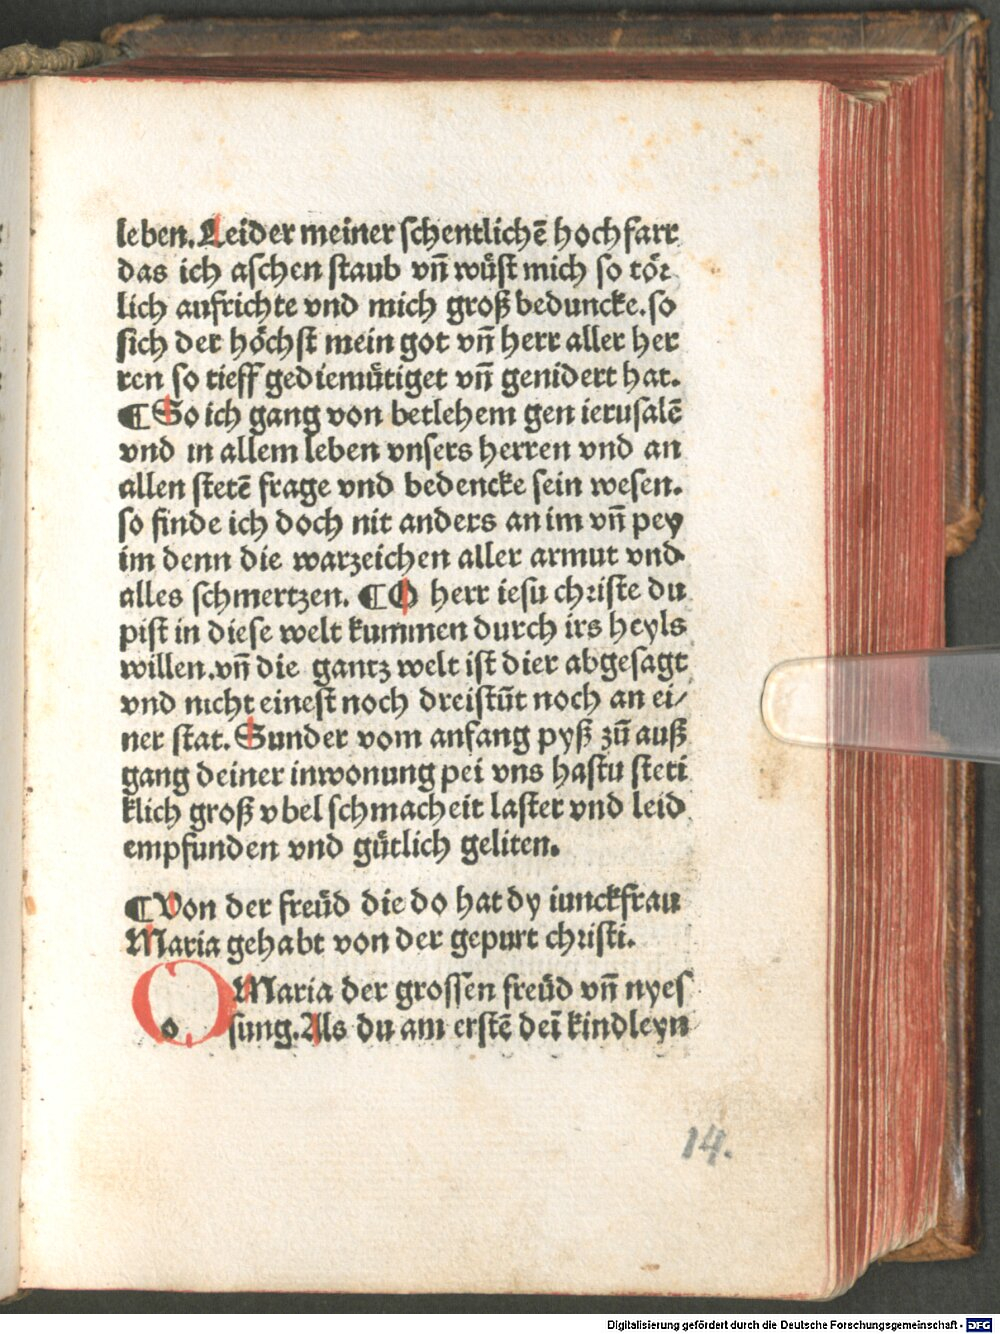 leben. Leider meiner schentlichē hochfart
das ich aschen staub vn̄ wůst mich so tör
lich aufrichte vnd mich groß beduncke. so
sich der höchst mein got vn̄ herr aller her
ren so tieff gediemütiget vn̄ genidert hat.
¶ So ich gang von betlehem gen ierusalē
vnd in allem leben vnsers herren vnd an
allen stetē frage vnd bedencke sein wesen.
so finde ich doch nit anders an im vn̄ pey
im denn die warzeichen aller armut vnd
alles schmertzen. ¶ O herr iesu christe du
pist in diese welt kummen durch irs heyls
willen. vn̄ die gantz welt ist dier abgesagt
vnd nicht einest noch dreistūt noch an ei/
ner stat. Sunder vom anfang pyß zū auß
gang deiner inwonung pei vns hastu steti
klich groß vbel schmacheit laster vnd leid
empfunden vnd gütlich geliten.
¶ Von der freüd die do hat dy iunckfrau
Maria gehabt von der gepurt christi.
O Maria der grossen freüd vn̄ nyes
sung. Als du am erstē deī kindleyn
14.
Digitalisierung gefördert durch die Deutsche Forschungsgemeinschaft - DFG